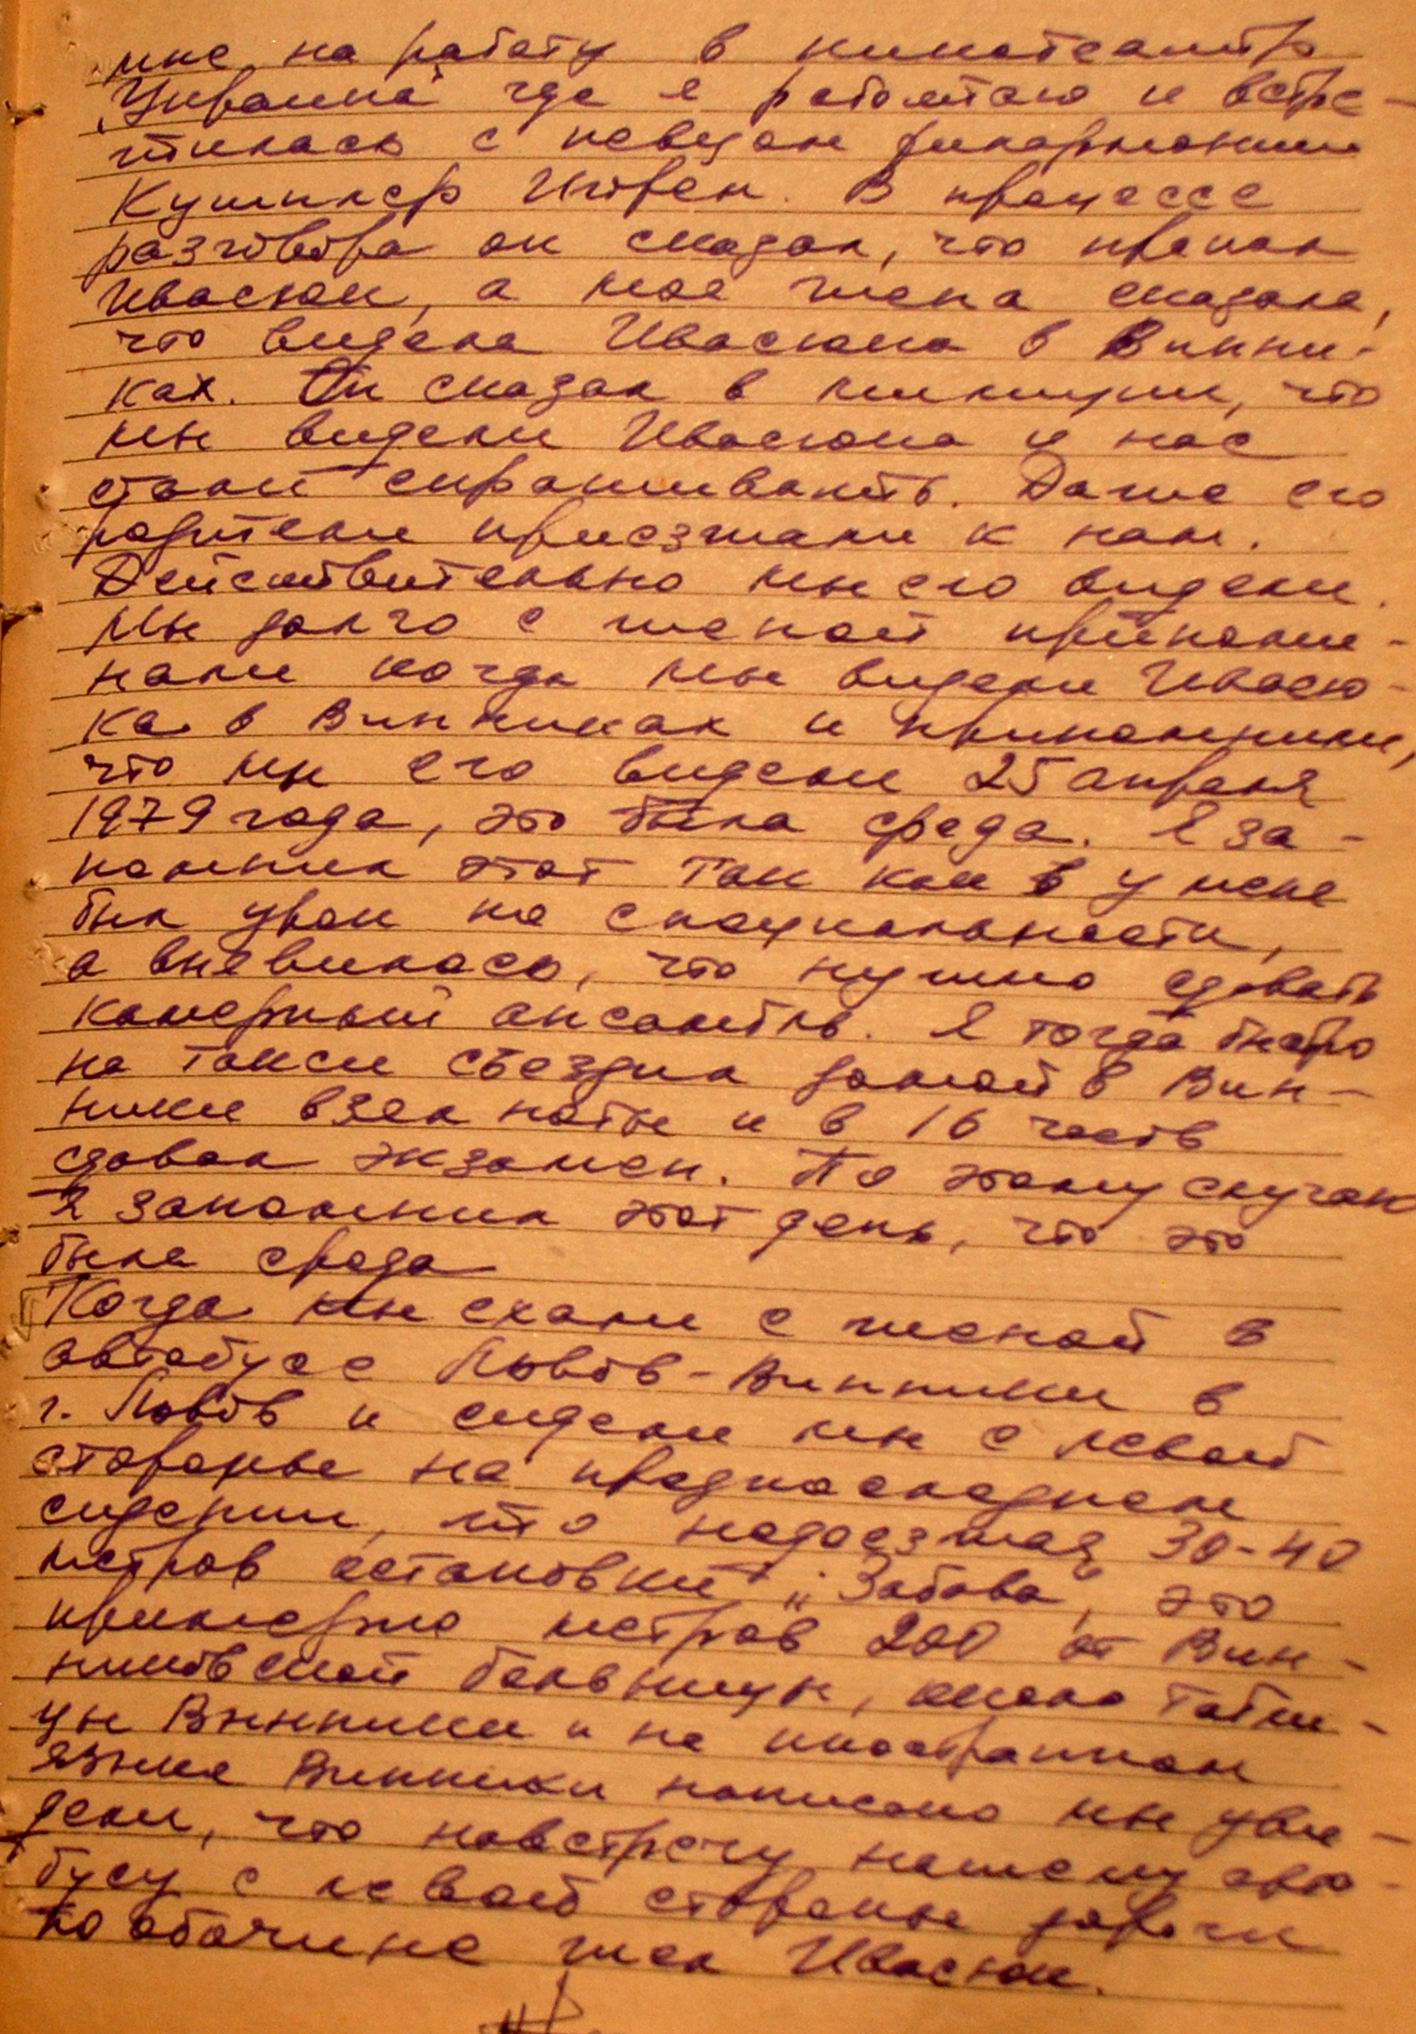 мне на работу в кинотеатр
„Украина" где я работаю и встре-
тилась с певцом филармонии
Кушплер Игорем. В процессе
разговора он сказал, что пропал
Ивасюк, а моя жена сказала,
что видела Ивасюка в Винни-
ках. Он сказал в милиции, что
мы видели Ивасюка и нас
стали спрашивать. Даже его
родители приезжали к нам.
Действительно мы его видели.
Мы долго с женой припоми-
нали когда мы видели Ивасю-
ка в Винниках и припомнили,
что мы его видели 25 апреля
1979 года, это была среда. Я за-
помнил этот так как в у меня
был урок по специальности,
а выявилось, что нужно сдавать
камерный ансамбль. Я тогда быстро
на такси съездил домой в Вин-
ники взял ноты и в 16 часов
сдавал экзамен. По этому случаю
я запомнил этот день, что это
была среда
Когда мы ехали с женой в
автобусе Львов-Винники в
г. Львов и сидели мы с левой
стороны на предпоследнем
сидении, то недоезжая 30-40
метров остановки „Забава", это
примерно метров 200 от Вин-
никовской больницы, около табли-
цы Винники и на иностранном
языке Винники написано мы уви-
дели, что навстречу нашему авто-
бусу с левой стороны дороги
по обочине шел Ивасюк.